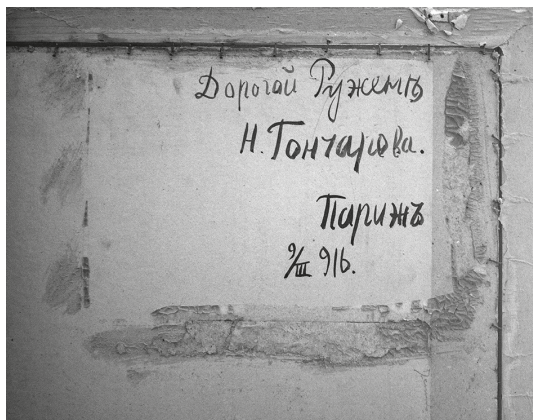 Дорогой Ружемъ
Н. Гончарова.
Парижъ
9/III 916.